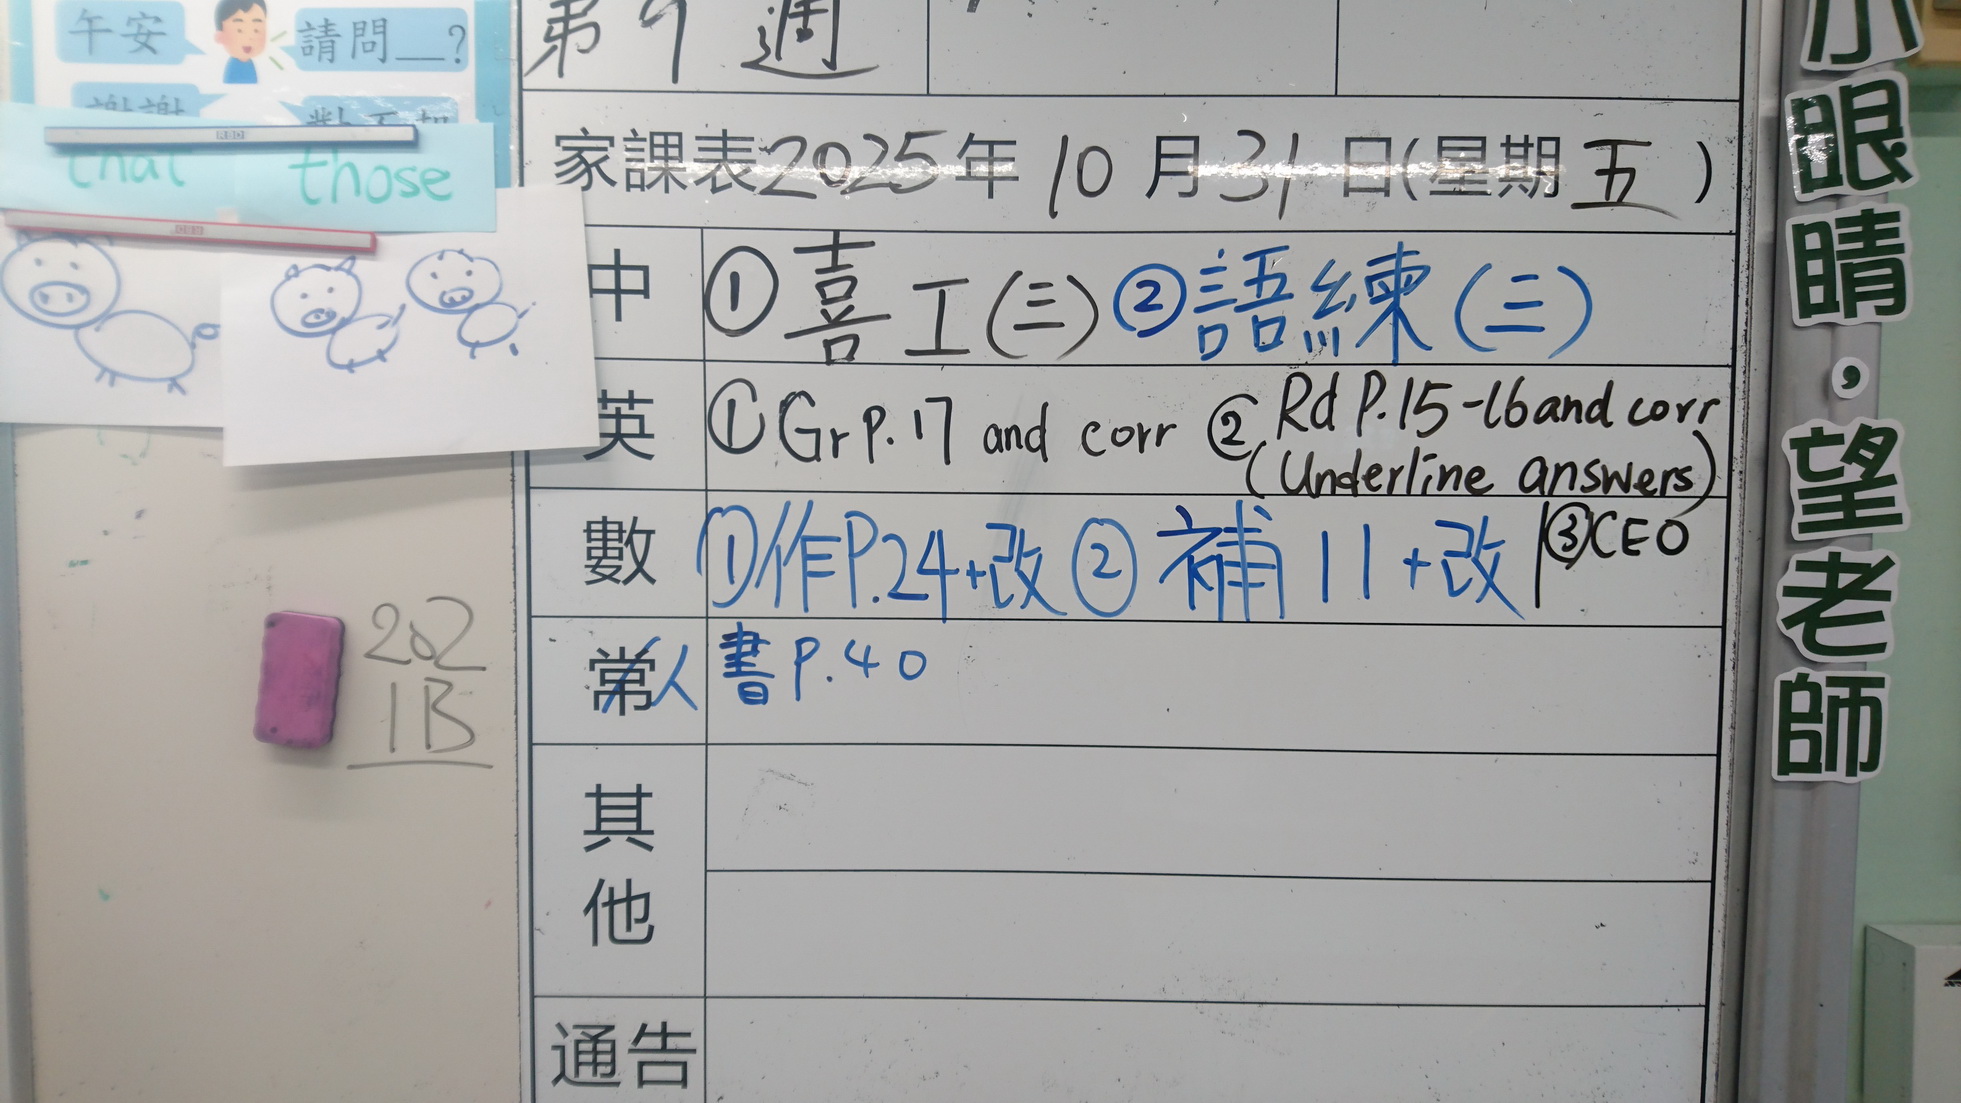 午安
請問__?
謝謝
對不起
that
those
第9週
家課表2025年10月31日(星期五)
中 ①喜工(三)②語練(三)
英 ①Gr P.17 and corr ②Rd P.15-16 and corr
(Underline answers)
數 ①作P.24+改 ②補11+改 ③CEO
常人 書P.40
其他
通告
202
1B
小眼睛,望老師